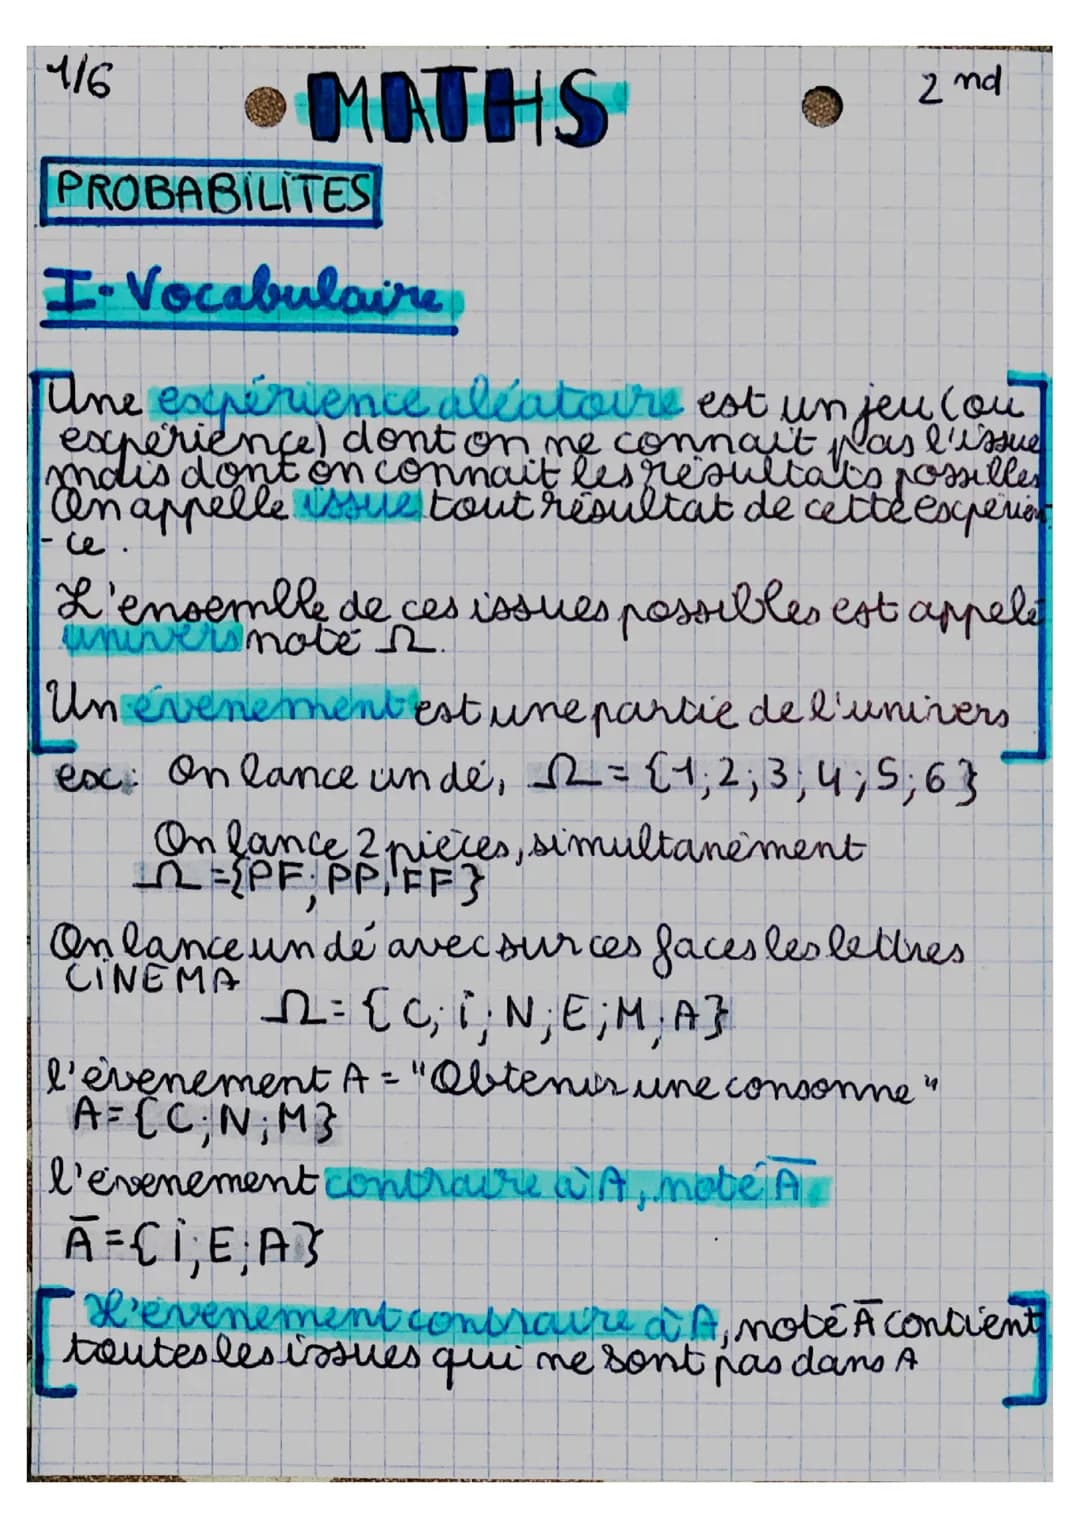 1/6
MATHS
2nd
PROBABILITES
I- Vocabulaire
Une expérience aléatoire est un jeu (ou
expérience) dont on ne connait pas l'issue
mais dont on connait les résultats possibles
On appelle issue tout résultat de cette expérien
-ce.
L'ensemble de ces issues possibles est appelé
univers noté Ω.
Un évenement est une partie de l'univers
ex: On lance un dé, Ω = {1;2;3;4;5;6}
On lance 2 pièces, simultanément
Ω = {PF; PP; FF}
On lance un dé avec sur ces faces les lettres
CINEMA
Ω = {C; i; N; E; M; A}
l'évenement A = "Obtenir une consonne"
A = {C; N; M}
l'évenement contraire à A, noté Ā.
Ā = {i; E; A}
L'évenement contraire à A, noté Ā contient
toutes les issues qui ne sont pas dans A